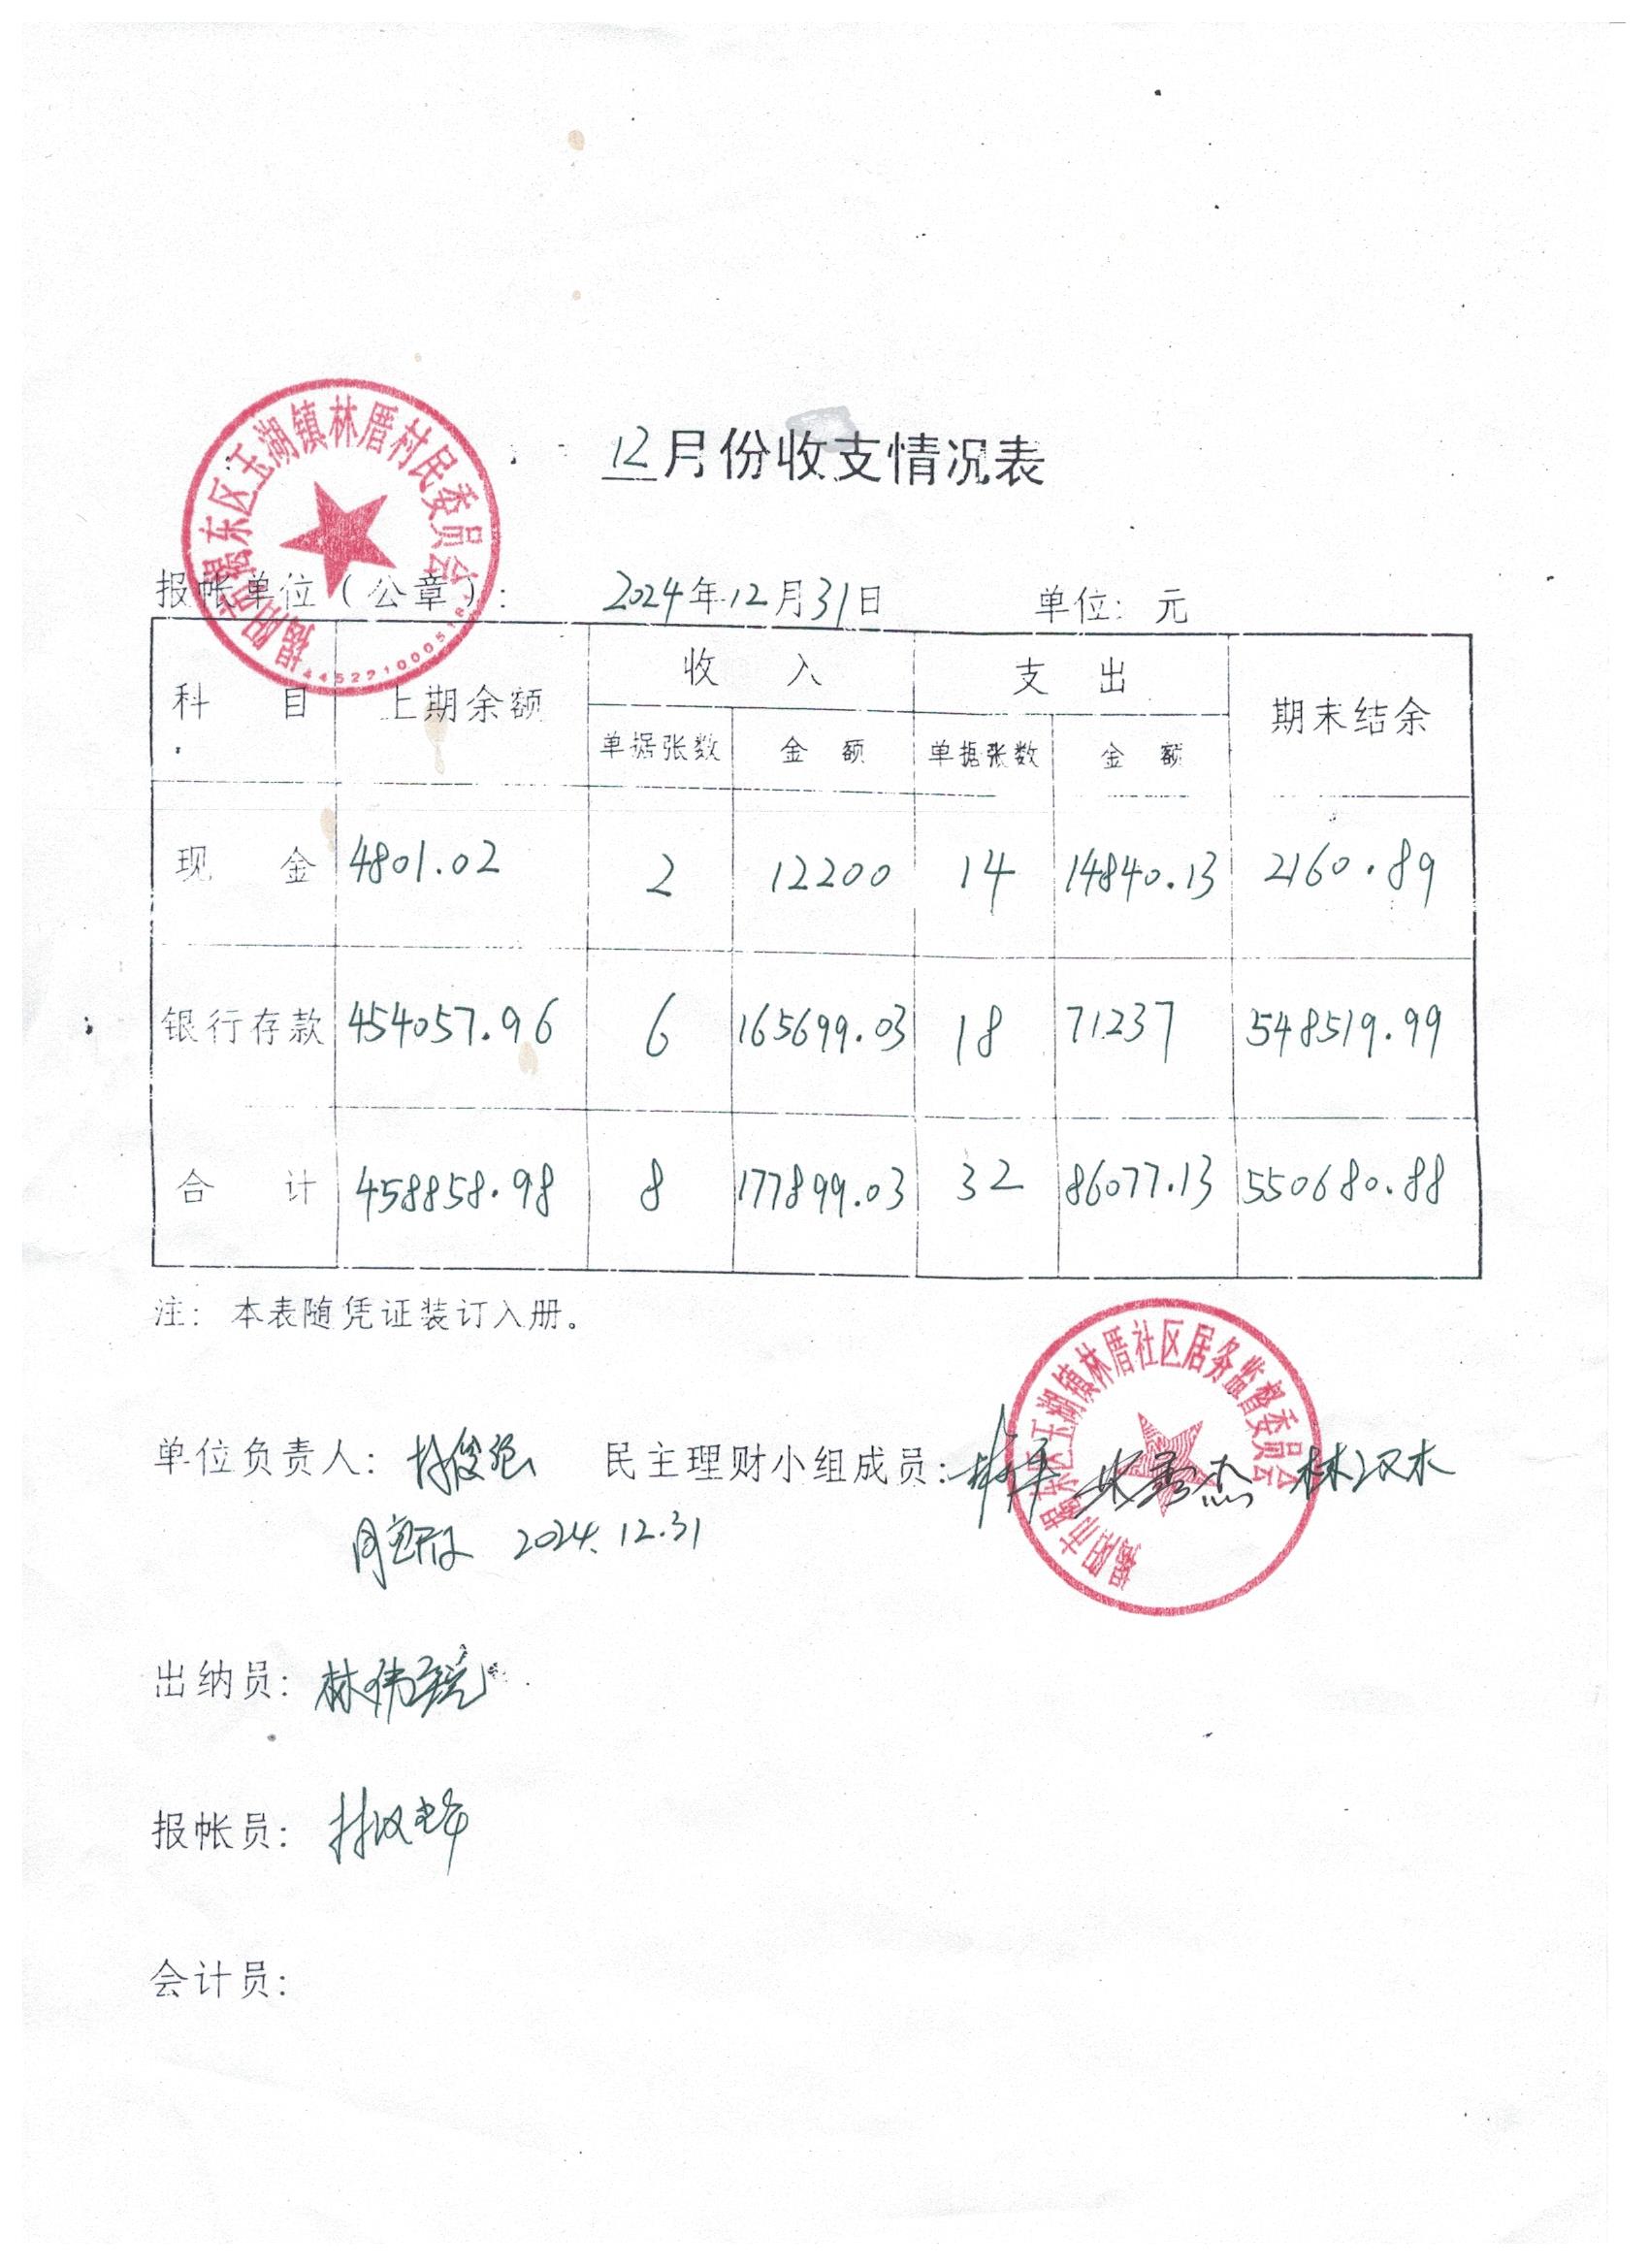 揭阳市揭东区玉湖镇林厝村民委员会
12月份收支情况表
报帐单位（公章）： 2024年12月31日 单位：元
科 目 上期余额 收 入 支 出 期末结余
单据张数 金 额 单据张数 金 额
现 金 4801.02 2 12200 14 14840.13 2160.89
银行存款 454057.96 6 165699.03 18 71237 548519.99
合 计 458858.98 8 177899.03 32 86077.13 550680.88
注：本表随凭证装订入册。
揭阳市揭东区玉湖镇林厝社区居务监督委员会
单位负责人：林俊强 民主理财小组成员： 林汉木
2024.12.31
出纳员：林伟
报帐员：林汉
会计员：